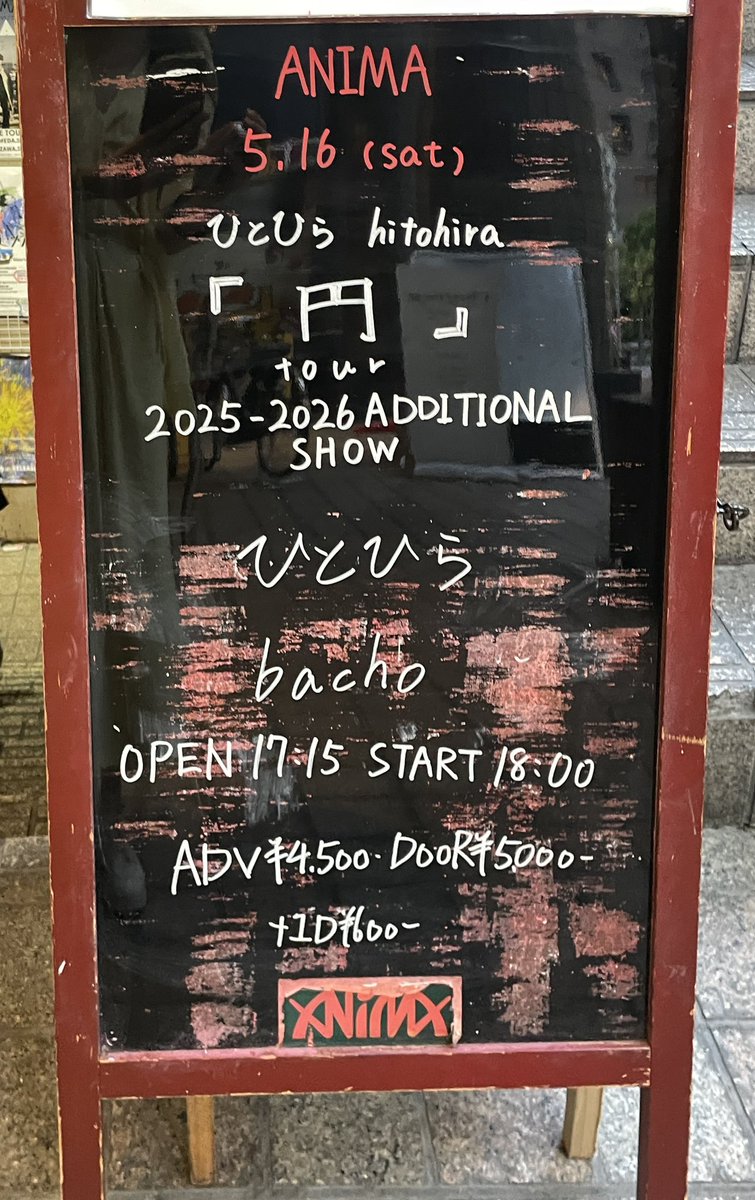 ANIMA
5.16 (sat)
ひとひら hitohira
『 円 』
tour
2025-2026 ADDITIONAL
SHOW
ひとひら
bacho
OPEN 17:15 START 18:00
ADV ¥4.500- DOOR ¥5000-
+1D ¥600-
ANIMA